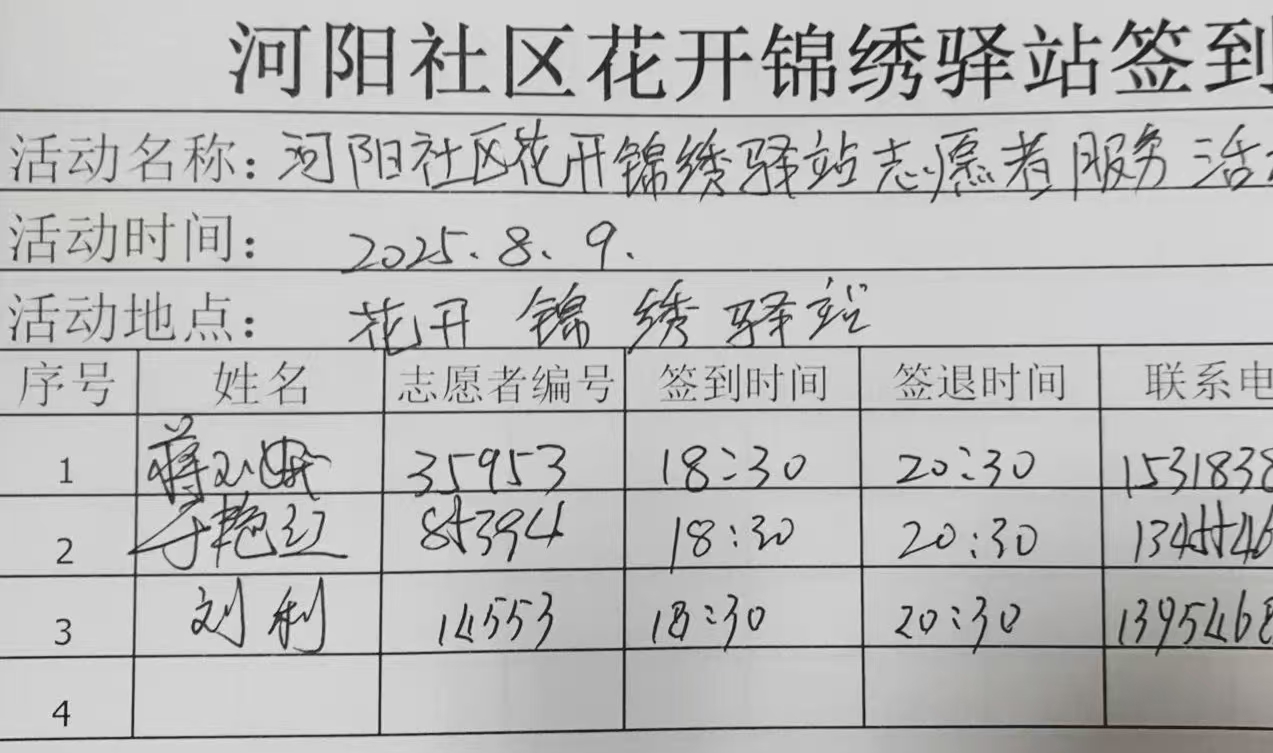 河阳社区花开锦绣驿站签到
活动名称：河阳社区花开锦绣驿站志愿者服务活
活动时间：2025.8.9.
活动地点：花开锦绣驿站
序号 姓名 志愿者编号 签到时间 签退时间 联系电
1 蒋 35953 18:30 20:30 1531838
2 于艳红 85394 18:30 20:30
3 刘利 14553 18:30 20:30 1395468
4